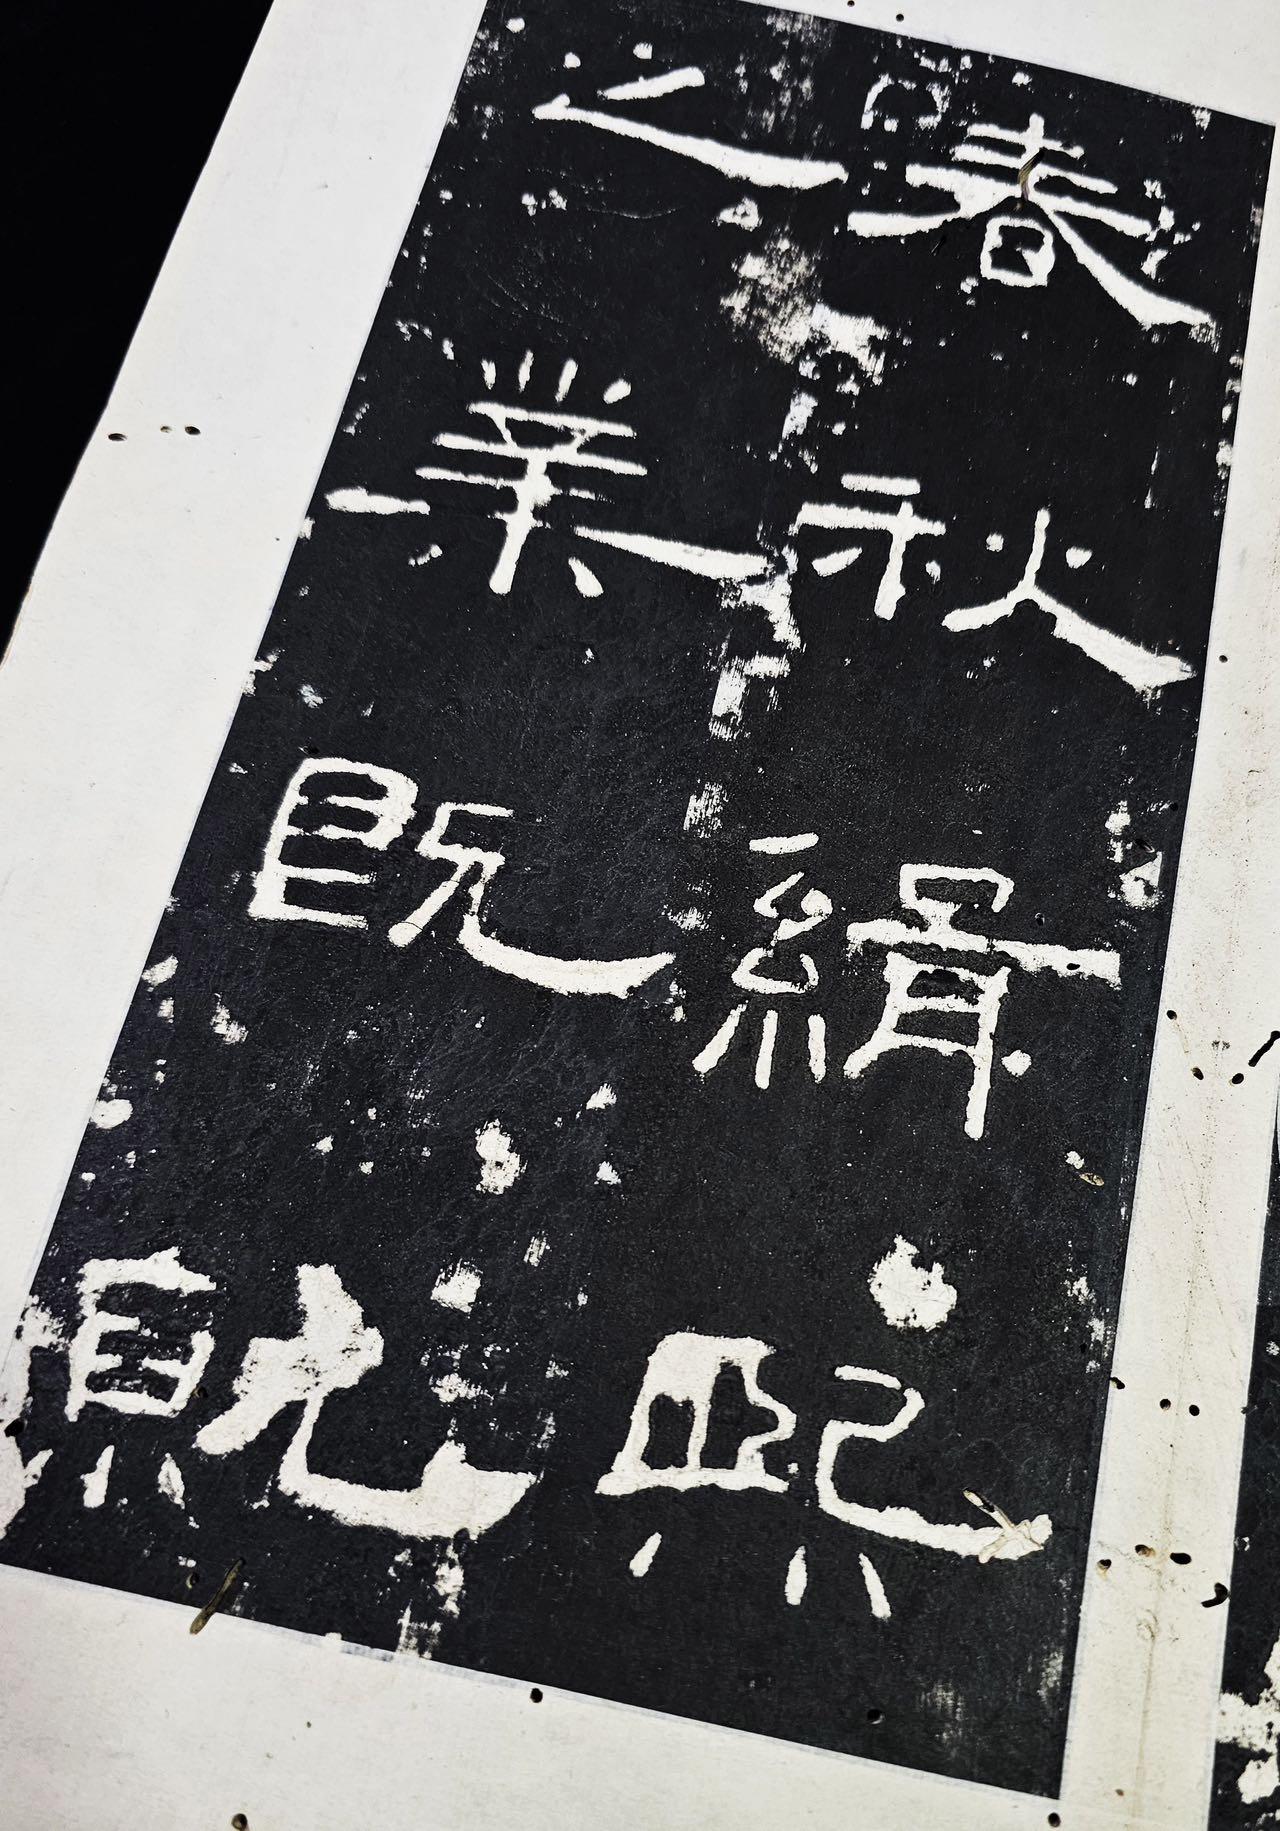 春秋緝熙
之業既就